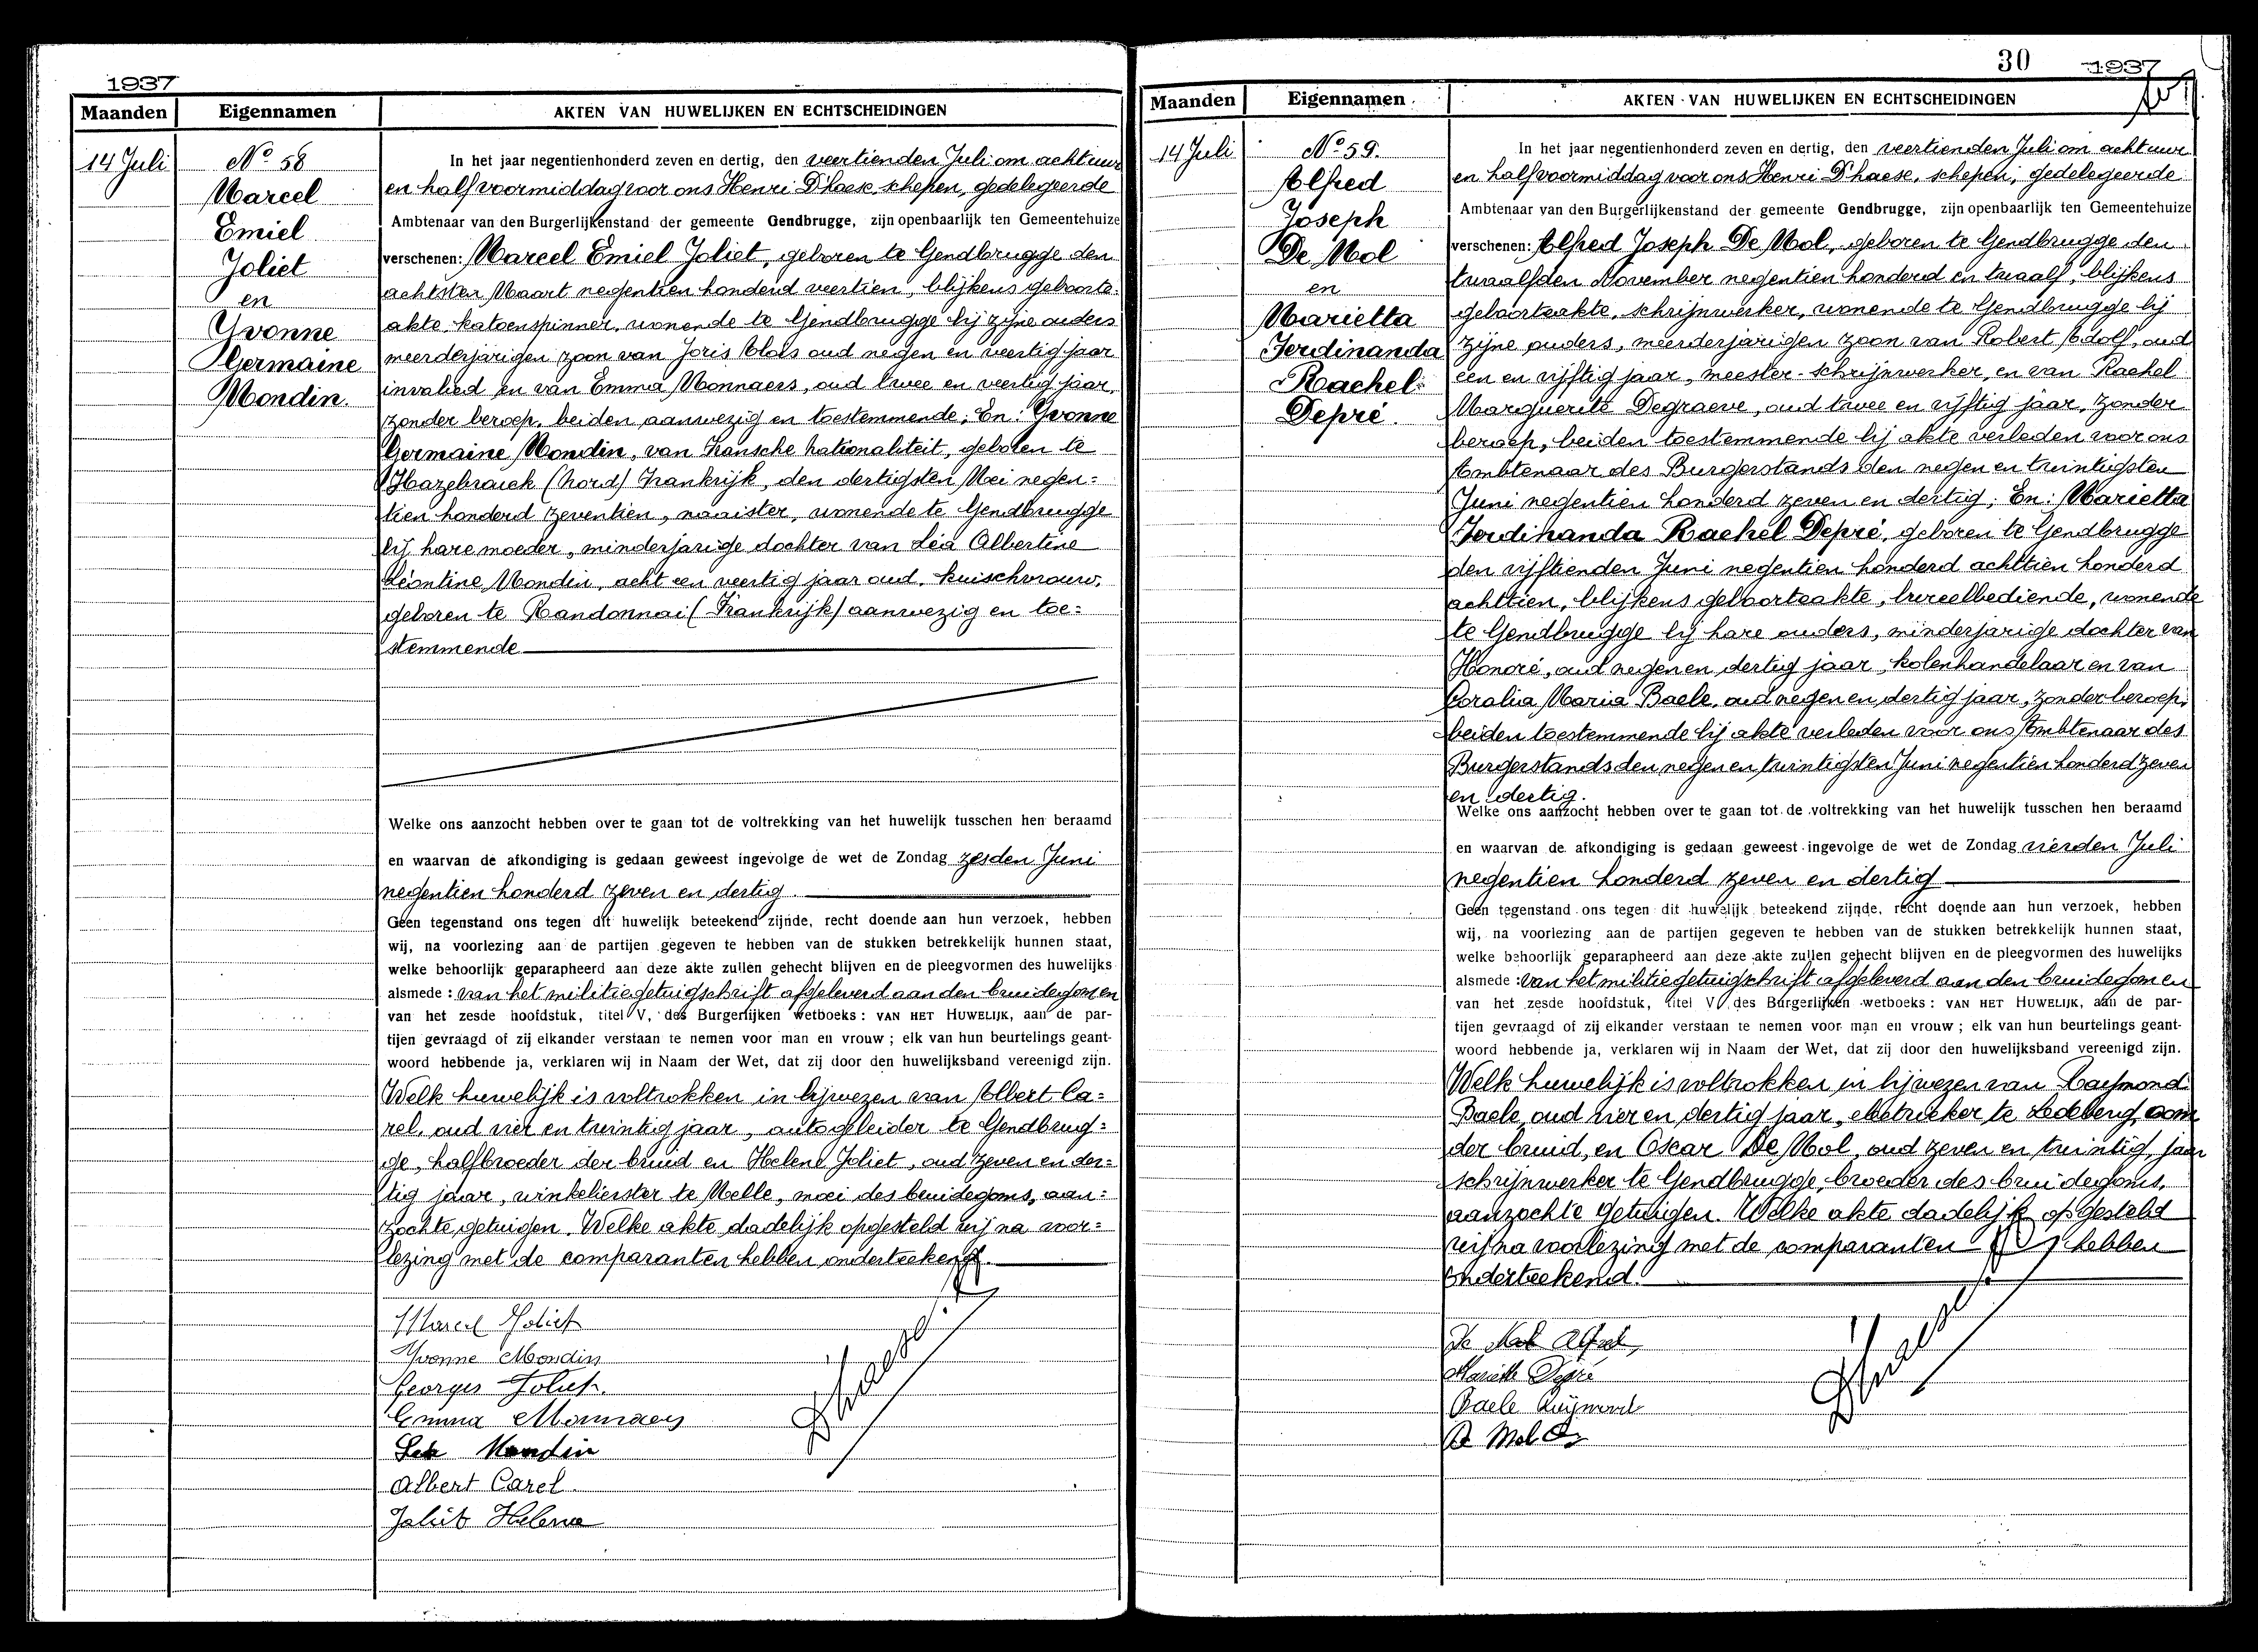 1937
Maanden
Eigennamen
AKTEN VAN HUWELIJKEN EN ECHTSCHEIDINGEN
14 Juli
No 58
Marcel
Emiel
Joliet
en
Yvonne
Germaine
Mondin.
In het jaar negentienhonderd zeven en dertig, den veertienden Juli om acht uur
en half voormiddag voor ons Henri D'haese schepen, gedelegeerde
Ambtenaar van den Burgerlijkenstand der gemeente Gendbrugge, zijn openbaarlijk ten Gemeentehuize
verschenen: Marcel Emiel Joliet, geboren te Gendbrugge den
achtsten Maart negentien honderd veertien, blijkens geboorte-
akte, katoenspinner, wonende te Gendbrugge bij zijne ouders
meerderjarigen zoon van Joris oud negen en veertig jaar
invalied en van Emma Monnaers, oud twee en veertig jaar,
zonder beroep, beiden aanwezig en toestemmende; En: Yvonne
Germaine Mondin, van Fransche nationaliteit, geboren te
Hazebrouck (Nord) Frankrijk, den dertigsten Mei negen=
tien honderd zeventien, naaister, wonende te Gendbrugge
bij hare moeder, minderjarige dochter van Léa Albertine
Léontine Mondin, acht en veertig jaar oud, kuischvrouw,
geboren te Randonnai (Frankrijk) aanwezig en toe=
stemmende
Welke ons aanzocht hebben over te gaan tot de voltrekking van het huwelijk tusschen hen beraamd
en waarvan de afkondiging is gedaan geweest ingevolge de wet de Zondag zesden Juni
negentien honderd zeven en dertig.
Geen tegenstand ons tegen dit huwelijk beteekend zijnde, recht doende aan hun verzoek, hebben
wij, na voorlezing aan de partijen gegeven te hebben van de stukken betrekkelijk hunnen staat,
welke behoorlijk geparapheerd aan deze akte zullen gehecht blijven en de pleegvormen des huwelijks
alsmede: van het militiegetuigschrift afgeleverd aan den bruidegom en
van het zesde hoofdstuk, titel V, des Burgerlijken wetboeks: VAN HET HUWELIJK, aan de par-
tijen gevraagd of zij elkander verstaan te nemen voor man en vrouw; elk van hun beurtelings geant-
woord hebbende ja, verklaren wij in Naam der Wet, dat zij door den huwelijksband vereenigd zijn.
Welk huwelijk is voltrokken in bijwezen van Albert Ca=
rel, oud vier en twintig jaar, autogeleider te Gendbrug=
ge, halfbroeder der bruid en Helene Joliet, oud zeven en der=
tig jaar, winkelierster te Melle, moei des bruidegoms, aan=
zochte getuigen. Welke akte dadelijk opgesteld wij na voor=
lezing met de comparanten hebben onderteekend.
Marcel Joliet
Yvonne Mondin
Georges Joliet.
Emma Monnaers
Léa Mondin
Albert Carel
Joliet Helena
D'haese
30
1937
Maanden
Eigennamen
AKTEN VAN HUWELIJKEN EN ECHTSCHEIDINGEN
14 Juli
No 59.
Alfred
Joseph
De Mol
en
Marietta
Ferdinanda
Rachel
Depré.
In het jaar negentienhonderd zeven en dertig, den veertienden Juli om acht uur
en half voormiddag voor ons Henri D'haese, schepen, gedelegeerde
Ambtenaar van den Burgerlijkenstand der gemeente Gendbrugge, zijn openbaarlijk ten Gemeentehuize
verschenen: Alfred Joseph De Mol, geboren te Gendbrugge den
twaalfden November negentien honderd en twaalf, blijkens
geboorteakte, schrijnwerker, wonende te Gendbrugge bij
zijne ouders, meerderjarigen zoon van Robert Adolf, oud
een en vijftig jaar, meester-schrijnwerker, en van Rachel
Marguerite Degraeve, oud twee en vijftig jaar, zonder
beroep, beiden toestemmende bij akte verleden voor ons
Ambtenaar des Burgerstands den negen en twintigsten
Juni negentien honderd zeven en dertig; En: Marietta
Ferdinanda Rachel Depré, geboren te Gendbrugge
den vijftienden Juni negentien honderd achttien honderd
achttien, blijkens geboorteakte, bureelbediende, wonende
te Gendbrugge bij hare ouders, minderjarige dochter van
Honoré, oud negen en dertig jaar, kolenhandelaar en van
Coralia Maria Baele, oud negen en dertig jaar, zonder beroep,
beiden toestemmende bij akte verleden voor ons Ambtenaar des
Burgerstands den negen en twintigsten Juni negentien honderd zeven
en dertig.
Welke ons aanzocht hebben over te gaan tot de voltrekking van het huwelijk tusschen hen beraamd
en waarvan de afkondiging is gedaan geweest ingevolge de wet de Zondag vierden Juli
negentien honderd zeven en dertig
Geen tegenstand ons tegen dit huwelijk beteekend zijnde, recht doende aan hun verzoek, hebben
wij, na voorlezing aan de partijen gegeven te hebben van de stukken betrekkelijk hunnen staat,
welke behoorlijk geparapheerd aan deze akte zullen gehecht blijven en de pleegvormen des huwelijks
alsmede: van het militiegetuigschrift afgeleverd aan den bruidegom en
van het zesde hoofdstuk, titel V des Burgerlijken wetboeks: VAN HET HUWELIJK, aan de par-
tijen gevraagd of zij elkander verstaan te nemen voor man en vrouw; elk van hun beurtelings geant-
woord hebbende ja, verklaren wij in Naam der Wet, dat zij door den huwelijksband vereenigd zijn.
Welk huwelijk is voltrokken in bijwezen van Raymond
Baele, oud vier en dertig jaar, electrieker te Ledeberg, oom
der bruid, en Oscar De Mol, oud zeven en twintig, jaar
schrijnwerker te Gendbrugge, broeder des bruidegoms,
aanzochte getuigen. Welke akte dadelijk opgesteld
wij na voorlezing met de comparanten hebben
onderteekend.
De Mol Alfred
Mariette Depré
Baele Raymond
De Mol
D'haese